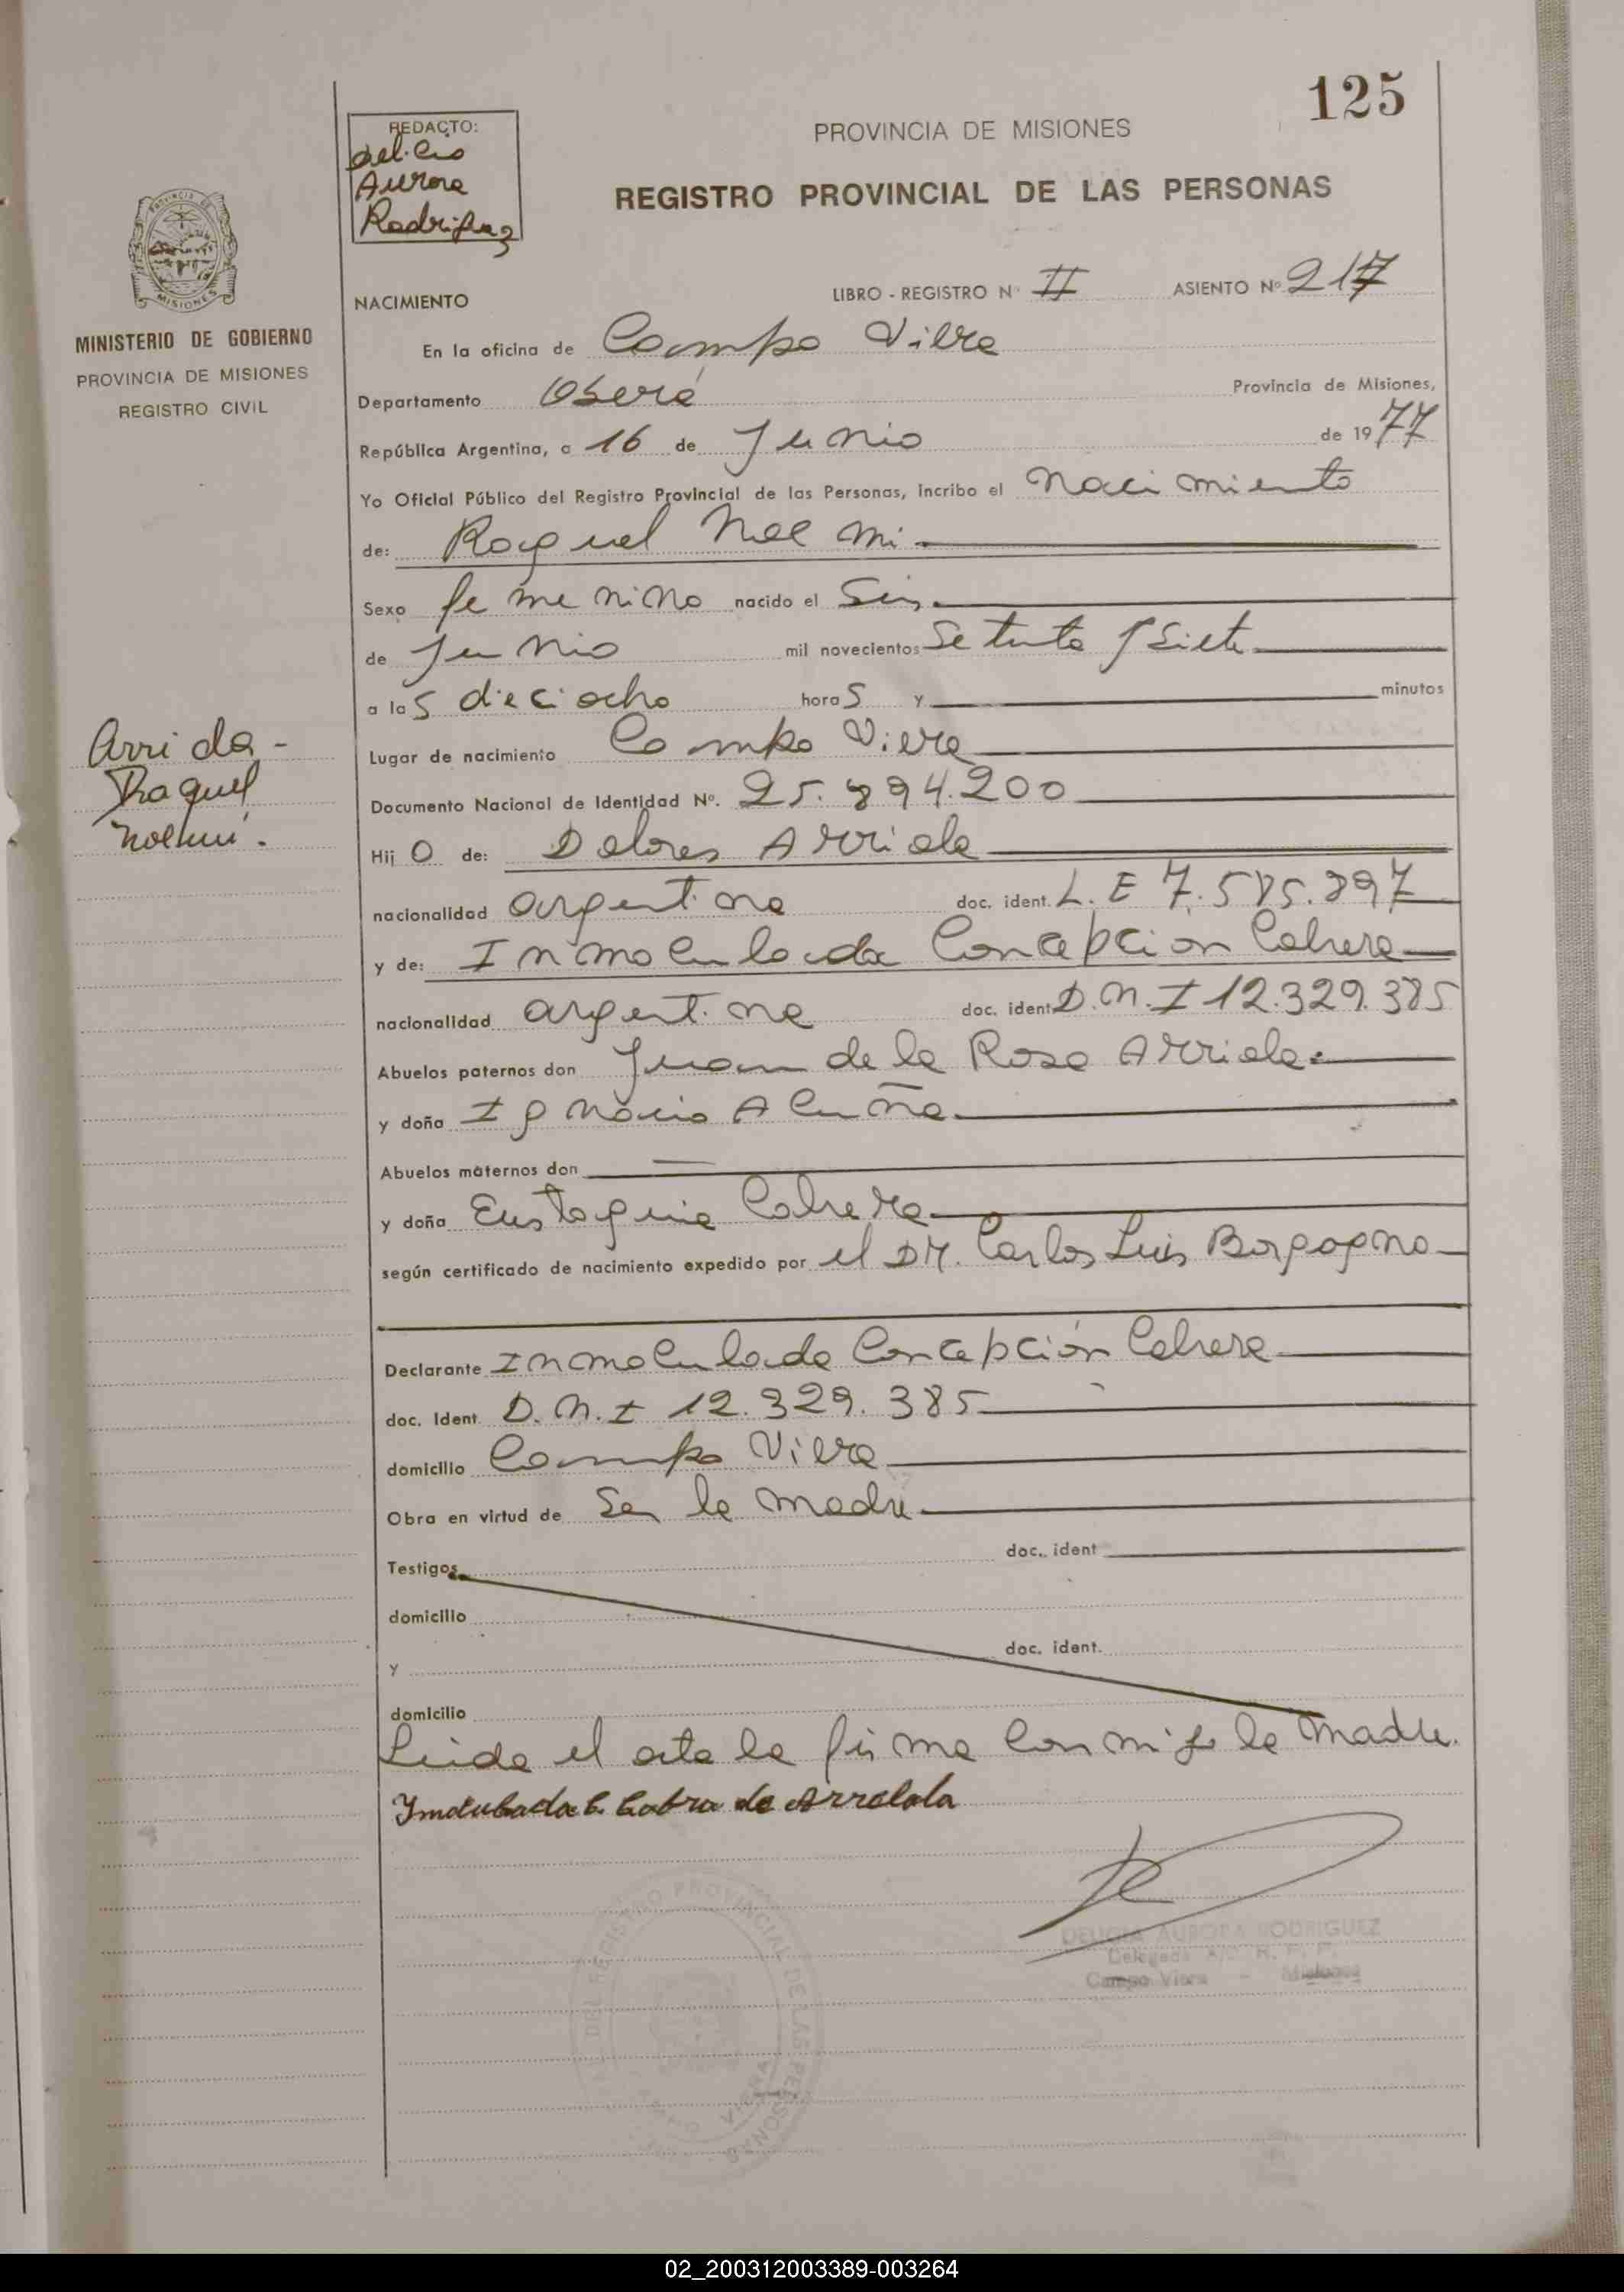 125
REDACTO:
Delicio
Aurora
Rodriguez
PROVINCIA DE MISIONES
REGISTRO PROVINCIAL DE LAS PERSONAS
PROVINCIA DE
MISIONES
MINISTERIO DE GOBIERNO
PROVINCIA DE MISIONES
REGISTRO CIVIL
NACIMIENTO LIBRO - REGISTRO Nº II ASIENTO Nº 217
En la oficina de Campo Viera
Departamento Oberá Provincia de Misiones,
República Argentina, a 16 de Junio de 1977
Yo Oficial Público del Registro Provincial de las Personas, incribo el Nacimiento
de: Raquel Noemi
Sexo femenino nacido el Seis
de Junio mil novecientos Setenta y Siete
a las dieciocho horas y minutos
Lugar de nacimiento Campo Viera
Arriola
Raquel
Noemí.
Documento Nacional de Identidad Nº. 25.894.200
Hijo de: Dolores Arriola
nacionalidad argentina doc. ident. L.E 7.585.897
y de: Inmaculada Concepcion Cabrera
nacionalidad argentina doc. ident. D.N.I 12.329.385
Abuelos paternos don Juan de la Rosa Arriola
y doña Ignacia Acuña
Abuelos maternos don
y doña Eustaquia Cabrera
según certificado de nacimiento expedido por el DR. Carlos Luis Borgogno
Declarante Inmaculada Concepción Cabrera
doc. ident. D.N.I 12.329.385
domicilio Campo Viera
Obra en virtud de Ser la madre
Testigos doc. ident
domicilio
y doc. ident.
domicilio
Leida el acta la firma conmigo la madre.
de Arrelola
DEL REGISTRO PROVINCIAL DE LAS PERSONAS
DELICIA AURORA RODRIGUEZ
Delegada A/C R. P. P.
Campo Viera - Misiones
02_200312003389-003264